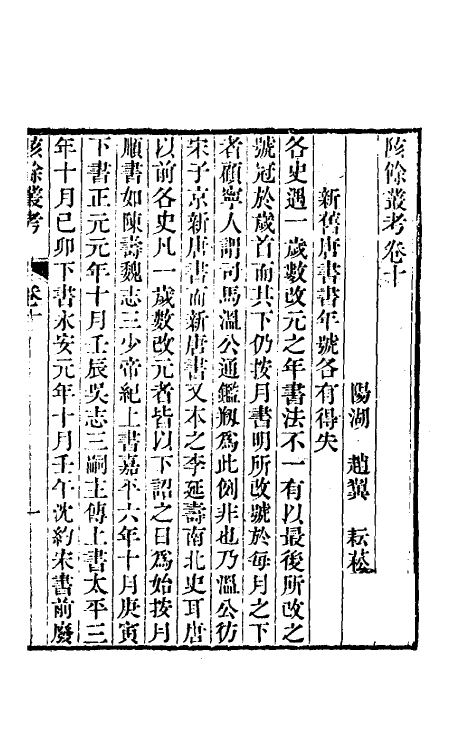 陔餘叢考卷十
陽湖 趙翼 耘菘
新舊唐書書年號各有得失
各史遇一歲數改元之年書法不一有以最後所改之
號冠於歲首而其下仍按月書明所改號於每月之下
者顧寧人謂司馬溫公通鑑剏爲此例非也乃溫公彷
宋子京新唐書而新唐書又本之李延壽南北史耳唐
以前各史凡一歲數改元者皆以下詔之日爲始按月
順書如陳壽魏志三少帝紀上書嘉平六年十月庚寅
下書正元元年十月壬辰吳志三嗣主傳上書太平三
年十月己卯下書永安元年十月壬午沈約宋書前廢
陔餘叢考 卷十 一